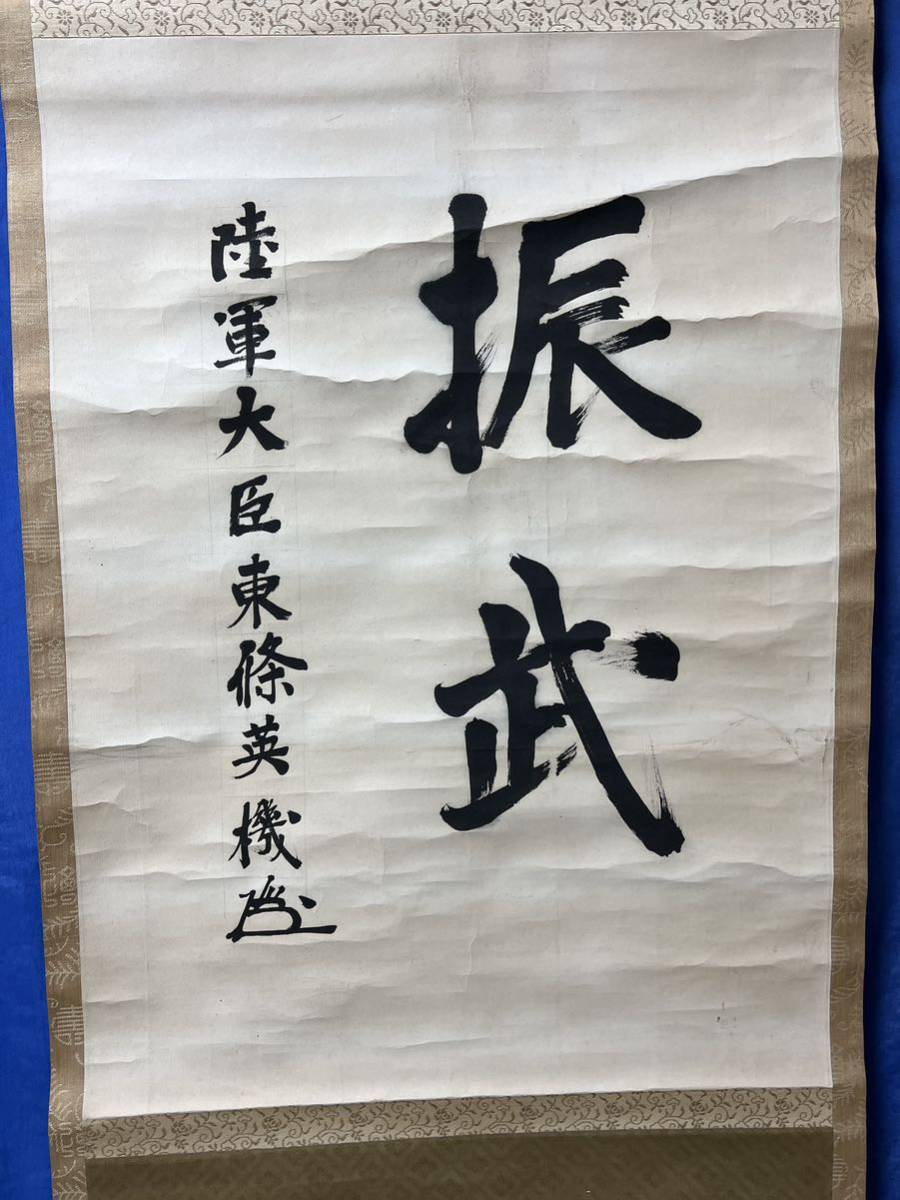 振武
陸軍大臣東條英機